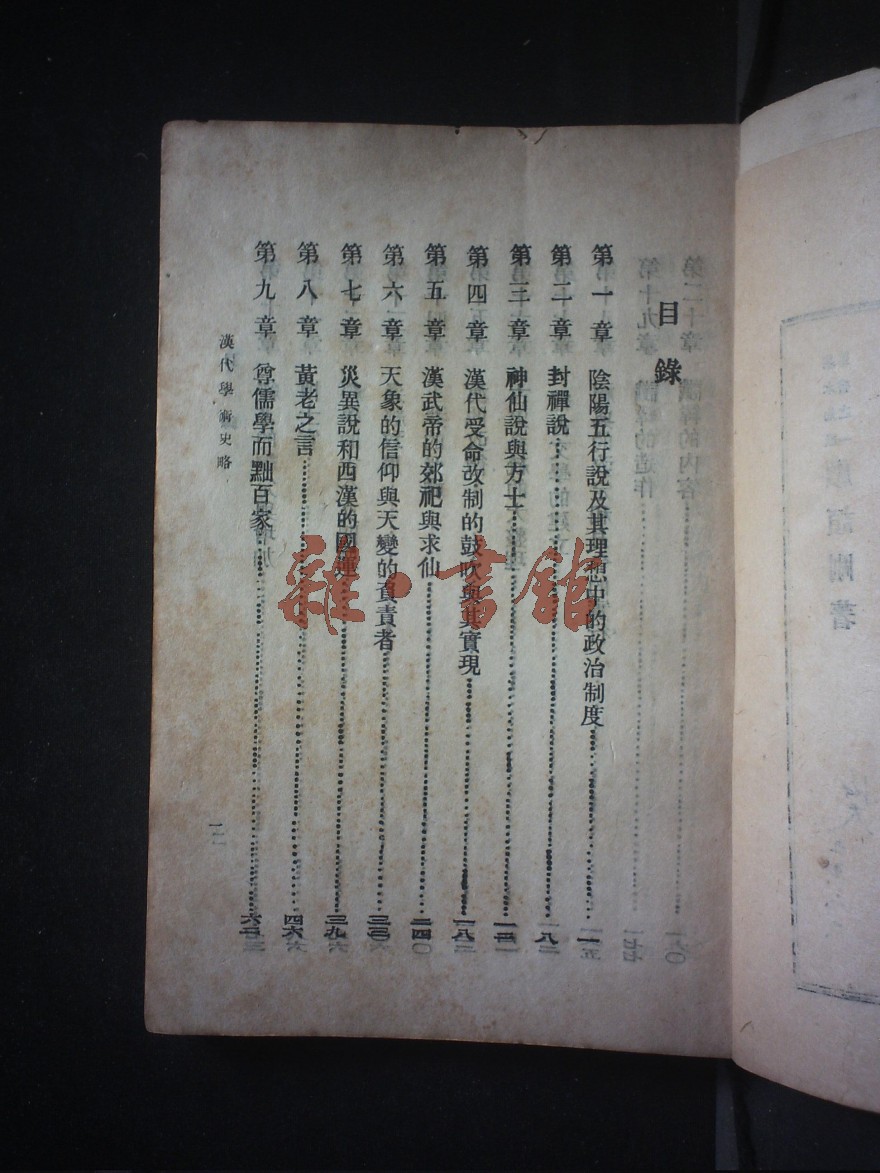 顧頡剛著
第二十章 讖緯的內容
第十九章 讖緯的造作 一七七
目錄
第一章 陰陽五行說及其理想中的政治制度
第二章 封禪說
第三章 神仙說與方士
第四章 漢代受命改制的鼓吹與其實現 一八
第五章 漢武帝的郊祀與求仙 二四
第六章 天象的信仰與天變的負責者
第七章 災異說和西漢的國運 三九
第八章 黃老之言 四六
第九章 尊儒學而黜百家
漢代學術史略
雜·書館